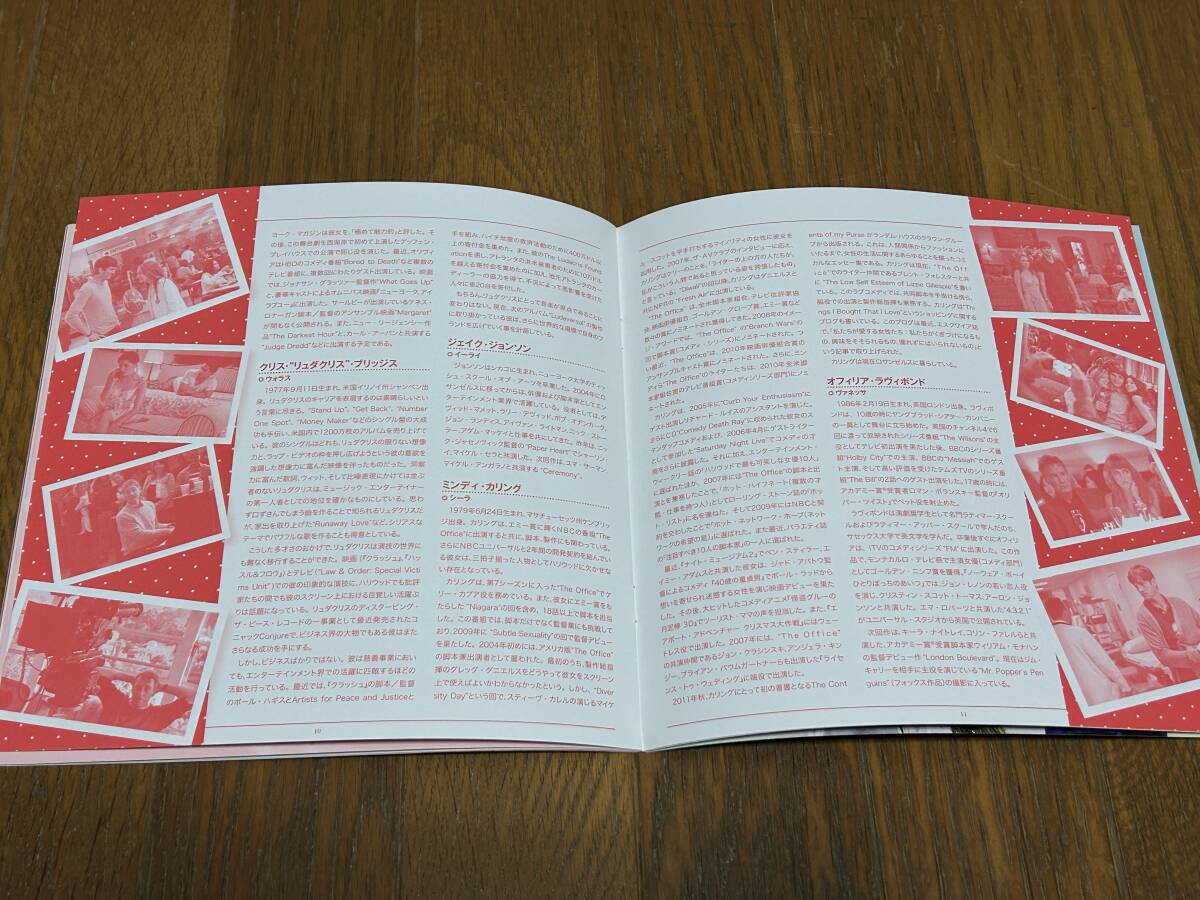 ヨーク・マガジンは彼女を、「極めて魅力的」と評した。そ
の後、この舞台劇を西海岸で初めて上演したゲッフェン・
プレイハウスでの公演で同じ役を演じた。最近、オリヴィ
アはHBOのコメディ番組"Bored to Death"など複数の
テレビ番組に、複数回にわたりゲスト出演している。映画
では、ジョナサン・グラツァー監督作"What Goes Up"
と、豪華キャストによるオムニバス映画『ニューヨーク、アイ
ラブユー』に出演した。サールビーが出演しているケネス・
ロナーガン脚本/監督のアンサンブル映画"Margaret"
が間もなく公開される。また、ニュー・リージェンシー作
品"The Darkest Hour"と、カール・アーバンと共演する
"Judge Dredd"などに出演する予定である。
クリス・"リュダクリス"・ブリッジス
ウォラス
1977年9月11日生まれ、米国イリノイ州シャンペン出
身。リュダクリスのキャリアを表現するのは素晴らしいとい
う言葉に尽きる。"Stand Up"、"Get Back"、"Number
One Spot"、"Money Maker"などのシングル盤の大成
功も手伝い、米国内で1200万枚のアルバムを売り上げて
いる。彼のシングルはどれも、リュダクリスの限りない想像
力と、ラップ・ビデオの枠を押し広げようという彼の意欲を
強調した想像力に富んだ映像を伴ったものだった。洞察
力に富んだ歌詞、ウィット、そして比喩表現にかけては並ぶ
者のないリュダクリスは、ミュージック・エンターテイナー
の第一人者としての地位を確かなものにしている。思わ
ず口ずさんでしまう曲を作ることで知られるリュダクリスだ
が、家出を取り上げた"Runaway Love"など、シリアスな
テーマでパワフルな歌を作ることも得意としている。
こうした多才さのおかげで、リュダクリスは演技の世界に
も難なく移行することができた。映画(『クラッシュ』『ハッ
スル&フロウ』)とテレビ("Law & Order: Special Victi
ms Unit")での彼の印象的な演技に、ハリウッドでも批評
家たちの間でも彼のスクリーン上における目覚しい活躍ぶ
りは話題になっている。リュダクリスのディスタービング・
ザ・ピース・レコードの一事業として最近発売されたコ
ニャックConjureで、ビジネス界の大物でもある彼はまた
さらなる成功を手にする。
しかし、ビジネスばかりではない。彼は慈善事業におい
ても、エンターテインメント界での活躍に匹敵するほどの
活動を行っている。最近では、『クラッシュ』の脚本/監督
のポール・ハギスとArtists for Peace and Justiceと
手を組み、ハイチ地震の救済活動のために400万ドル以
上の寄付金を集めた。また、彼のThe Ludacris Found
ationを通し、アトランタの洪水被害者のために10万ドル
を越える寄付金を集めたのに加え、地元アトランタのカー・
ディーラーの協力を得て、不況によって悪影響を受けた
人々に車20台を寄付した。
もちろん、リュダクリスにとって音楽が原点であることに
変わりはない。現在、次のアルバム"Ludaversal"の製作
に取り掛かっている彼は、さらに世界的な規模で自身のブ
ランドを広げていく事を計画している。
ジェイク・ジョンソン
イーライ
ジョンソンはシカゴに生まれ、ニューヨーク大学のティッ
シュ・スクール・オブ・アーツを卒業した。2004年にロ
サンゼルスに移ってからは、俳優および脚本家としてエン
ターテインメント業界で活躍している。役者としては、デ
ヴィッド・マメット、ラリー・デヴィッド、ボブ・オデンカーク、
ジョン・ランディス、アイヴァン・ライトマン、ニック・ストー
ラー、アダム・マッケイと仕事を共にしてきた。昨年は、ニッ
ク・ジャセノヴィック監督の"Paper Heart"でシャーリン・
イ、マイケル・セラと共演した。次回作は、ユマ・サーマン、
マイケル・アンガラノと共演する"Ceremony"。
ミンディ・カリング
シーラ
1979年6月24日生まれ、マサチューセッツ州ケンブリッ
ジ出身。カリングは、エミー賞に輝くNBCの番組"The
Office"に出演すると共に、脚本、製作にも関わっている。
さらにNBCユニバーサルと2年間の開発契約を結んでい
る彼女は、三拍子揃った人物としてハリウッドに欠かせな
い存在となっている。
カリングは、第7シーズンに入った"The Office"でケ
リー・カプア役を務めている。また、彼女にエミー賞をも
たらした"Niagara"の回を含め、18話以上で脚本を担当
した。この番組では、脚本だけでなく監督業にも挑戦して
おり、2009年に"Subtle Sexuality"の回で監督デビュー
を果たした。2004年初めには、アメリカ版"The Office"
の脚本兼出演者として雇われた。最初のうち、製作総指
揮のグレッグ・ダニエルスをどうやって彼女をスクリーン
上で使えばよいかわからなかったという。しかし、"Diver
sity Day"という回で、スティーヴ・カレルの演じるマイケ
10
ル・スコットを平手打ちするマイノリティの女性に彼女を
起用した。2007年、ザ・AVクラブのインタビューに応え、
カリングはケリーのことを、「ライターの上の方の人たちが、
私がこういう人間であると思っている姿を誇張したもの」
だと言っている。"Diwali"の回以降、カリングはダニエルスと
共にNPRの"Fresh Air"に出演している。
"The Office"は、全米脚本家組合、テレビ批評家協
会、映画俳優組合、ゴールデン・グローブ賞、エミー賞など
数々の賞にノミネートされ獲得してきた。2008年のイメー
ジ・アワードでは、"The Office"の"Branch Wars"の
回で脚本賞(コメディ・シリーズ)にノミネートされた。つ
い最近、"The Office"は、2010年映画俳優組合賞の
アンサンブルキャスト賞にノミネートされた。さらに、ミン
ディら"The Office"のライターたちは、2010年全米脚
本家組合賞のテレビ番組賞(コメディシリーズ部門)にノミ
ネートされた。
カリングは、2005年に"Curb Your Enthusiasm"に
ゲスト出演しリチャード・ルイスのアシスタントを演じた。
さらにCD"Comedy Death Ray"に収められた彼女のス
タンダップコメディおよび、2006年4月にゲストライター
として参加した"Saturday Night Live"でコメディの才
能をさらに披露した。それに加え、エンターテインメント・
ウィークリー誌の「ハリウッドで最も可笑しな女優10人」
に選ばれたほか、2007年には"The Office"の脚本と出
演とを兼務したことで、「ホット・ハイフネイト(複数の才
能・仕事を持つ人)」としてローリング・ストーン誌の「ホッ
ト・リスト」に名を連ねた。そして2009年にはNBCと契
約を交わしたことで「ホット・ネットワーク・ホープ(ネット
ワークの希望の星)」に選ばれた。また最近、バラエティ誌
が「注目すべき10人の脚本家」の一人に選ばれた。
最近、『ナイト・ミュージアム2』でベン・スティラー、エ
イミー・アダムスと共演した彼女は、ジャド・アパトウ監
督によるコメディ『40歳の童貞男』でポール・ラッドから
想いを寄せられ迷惑する女性を演じ映画デビューを果た
した。その後、大ヒットしたコメディアニメ『怪盗グルーの
月泥棒 3D』でツーリスト・ママの声を担当した。また、『エ
アポート・アドベンチャー クリスマス大作戦』にはウェー
トレス役で出演した。2007年には、"The Office"
の共演仲間であるジョン・クラシンスキ、アンジェラ・キン
ジー、ブライアン・バウムガートナーらも出演した『ライセ
ンス・トゥ・ウェディング』に端役で出演した。
2011年秋、カリングにとって初の著書となるThe Cont
ents of my Purse がランダムハウスのクラウン・グルー
プから出版される。これは、人間関係からファッションに
いたるまで、女性の生活に関するあらゆることを綴ったコミ
カルなエッセー集である。カリングは現在、"The Off
ice"でのライター仲間であるブレント・フォレスターと共
に、"The Low Self Esteem of Lizzie Gillespie"を書い
ている。このラブコメディでは、共同脚本を手掛ける傍ら、
脇役での出演と製作総指揮も兼務する。カリングは"Thi
ngs I Bought That I Love"というショッピングに関する
ブログも書いている。このブログは最近、エスクワイア誌
で、「私たちが愛する女性たち:私たちがくぎづけになるも
の、興味をそそられるもの、憧れずにはいられないもの」と
いう記事で取り上げられた。
カリングは現在ロサンゼルスに暮らしている。
オフィリア・ラヴィボンド
ヴァネッサ
1986年2月19日生まれ、英国ロンドン出身。ラヴィボ
ンドは、10歳の時にヤングブラッド・シアター・カンパニー
の一員として舞台に立ち始めた。英国のチャンネル4で6
回に渡って放映されたシリーズ番組"The Wilsons"の主
役としてテレビ初出演を果たした後、BBCのシリーズ番
組"Holby City"での主演、BBCの"Messiah"でのゲス
ト主演、そして高い評価を受けたテムズTVのシリーズ番
組"The Bill"の2話へのゲスト出演をした。17歳の時には、
アカデミー賞®受賞者ロマン・ポランスキー監督の『オリ
バー・ツイスト』でベット役を射止めた。
ラヴィボンドは演劇畑学生として名門ラティマー・スクー
ルおよびラティマー・アッパー・スクールで学んだのち、
サセックス大学で英文学を学んだ。卒業後すぐにオフィリ
アは、iTVのコメディシリーズ"FM"に出演した。この作
品で、モンテカルロ・テレビ祭で主演女優(コメディ部門)
としてゴールデン・ニンフ賞を獲得。『ノーウェア・ボーイ
ひとりぼっちのあいつ』では、ジョン・レノンの若い恋人役
を演じ、クリスティン・スコット・トーマス、アーロン・ジョ
ンソンと共演した。エマ・ロバーツと共演した"4.3.2.1"
がユニバーサル・スタジオから英国で公開されている。
次回作は、キーラ・ナイトレイ、コリン・ファレルらと共
演した、アカデミー賞®受賞脚本家ウィリアム・モナハン
の監督デビュー作"London Boulevard"。現在はジム・
キャリーを相手に主役を演じている"Mr. Popper's Pen
guins"(フォックス作品)の撮影に入っている。
11